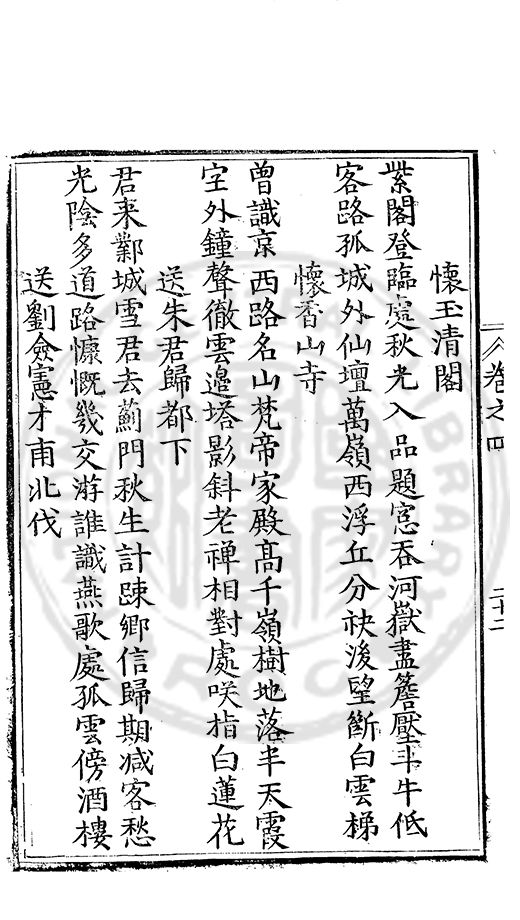 卷之四
二十二
懷玉清閣
紫閣登臨處秋光入品題窻吞河嶽盡簷壓斗牛低
客路孤城外仙壇萬嶺西浮丘分袂後望斷白雲梯
懷香山寺
曾識京西路名山梵帝家殿高千嶺樹地落半天霞
室外鐘聲徹雲邉塔影斜老禅相對處咲指白蓮花
送朱君歸都下
君来鄴城雪君去薊門秋生計踈鄉信歸期减客愁
光陰多道路慷慨幾交游誰識燕歌處孤雲傍酒樓
送劉僉憲才甫北伐